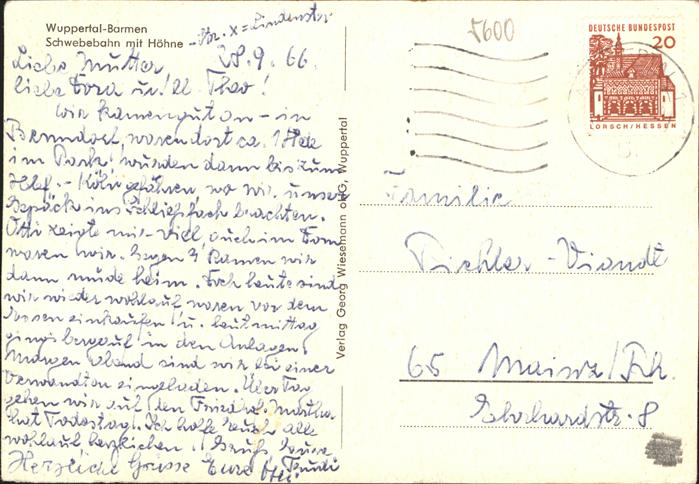 Wuppertal-Barmen
Schwebebahn mit Höhne - Str. X = Lindenstr
Liebe Mutter 28.9.66.
liebe Dora u. Theo!
wir kamen gut an - in
waren dort ca. 1 Std
im Park wurden dann bis zum
Hbf. - Köln gefahren, wo wir unser
Gepäck ins Schließfach brachten.
Otti zeigte mir viel, auch im Dom
waren wir. Gegen 7 kamen wir
dann müde heim. Doch heute sind
wir wieder wohlauf waren vor dem
Essen einkaufen u. heut mittag
gings bergauf in den Anlagen.
Morgen abend sind wir bei einer
Verwandten eingeladen. Über Tag
gehen wir auf den Friedhof. Martha
hat Todestag. Ich hoffe Euch alle
wohlauf herzlichen Gruß Eure
Herzliche Grüsse Eure Otti Trudi
Verlag Georg Wiesemann oHG, Wuppertal
5600
DEUTSCHE BUNDESPOST
20
LORSCH/HESSEN
Familie
Viandt
65 Mainz/Rh.
Ehrhardstr. 8